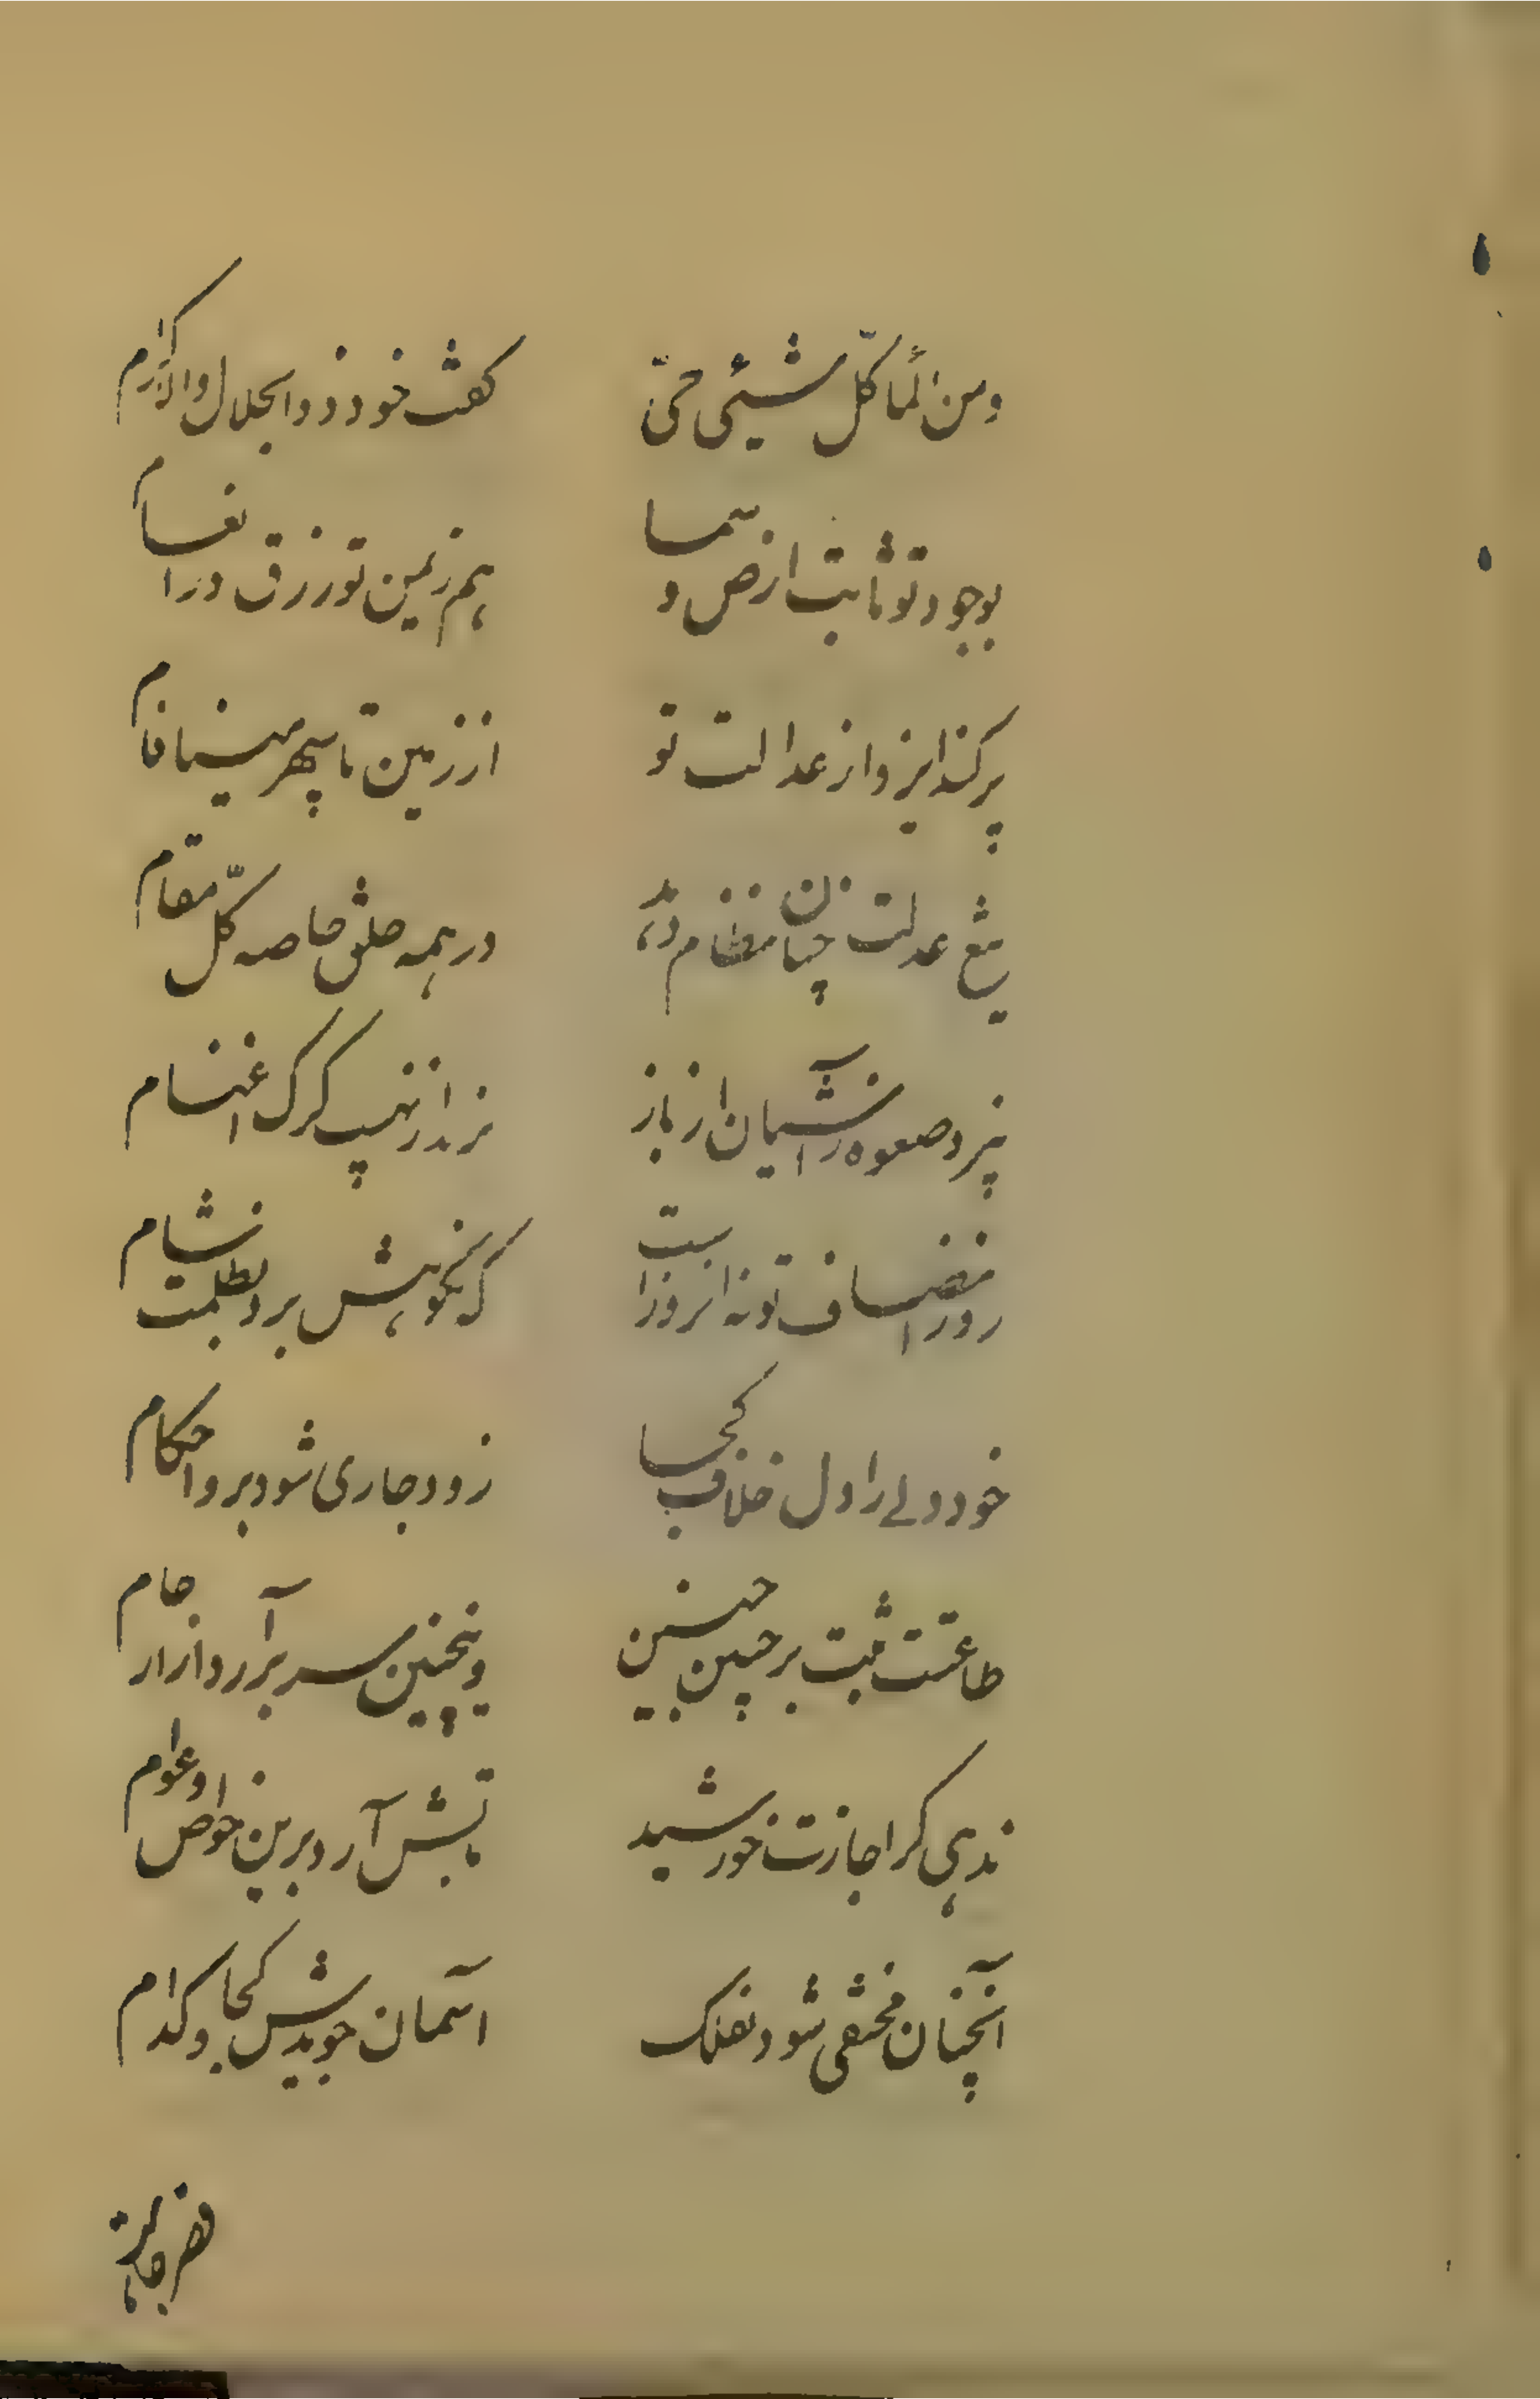 ومن الما کلّ شیئی حیّ کفت خود ذوالجلال والاکرام
بوجود تو ثابت ارض و سما هم زیمن تو رزق ورا انعام
پر کند ایزد از عدالت تو از زمین تا سپهر مینا فام
تیغ عدلت چنان نظام دهد در همه خلق خاصه کلّ مقام
نبرد صعوه را آشیان از باز نرمد از نهیب کرک اغنام
روز انصاف تو نه انروز است که نکوهش برد بظلمت شام
خود دولی را دل خلاف کجا زود جاری شود برو احکام
طاعتت ثبت بر جبین جنین وینچنین سر برآرد از ارحام
ندهی کر اجازت خورشید تابش آرد برین خواص و عوام
آنچنان مختفی شود بفلک آسمان جویدش کجا و کدام